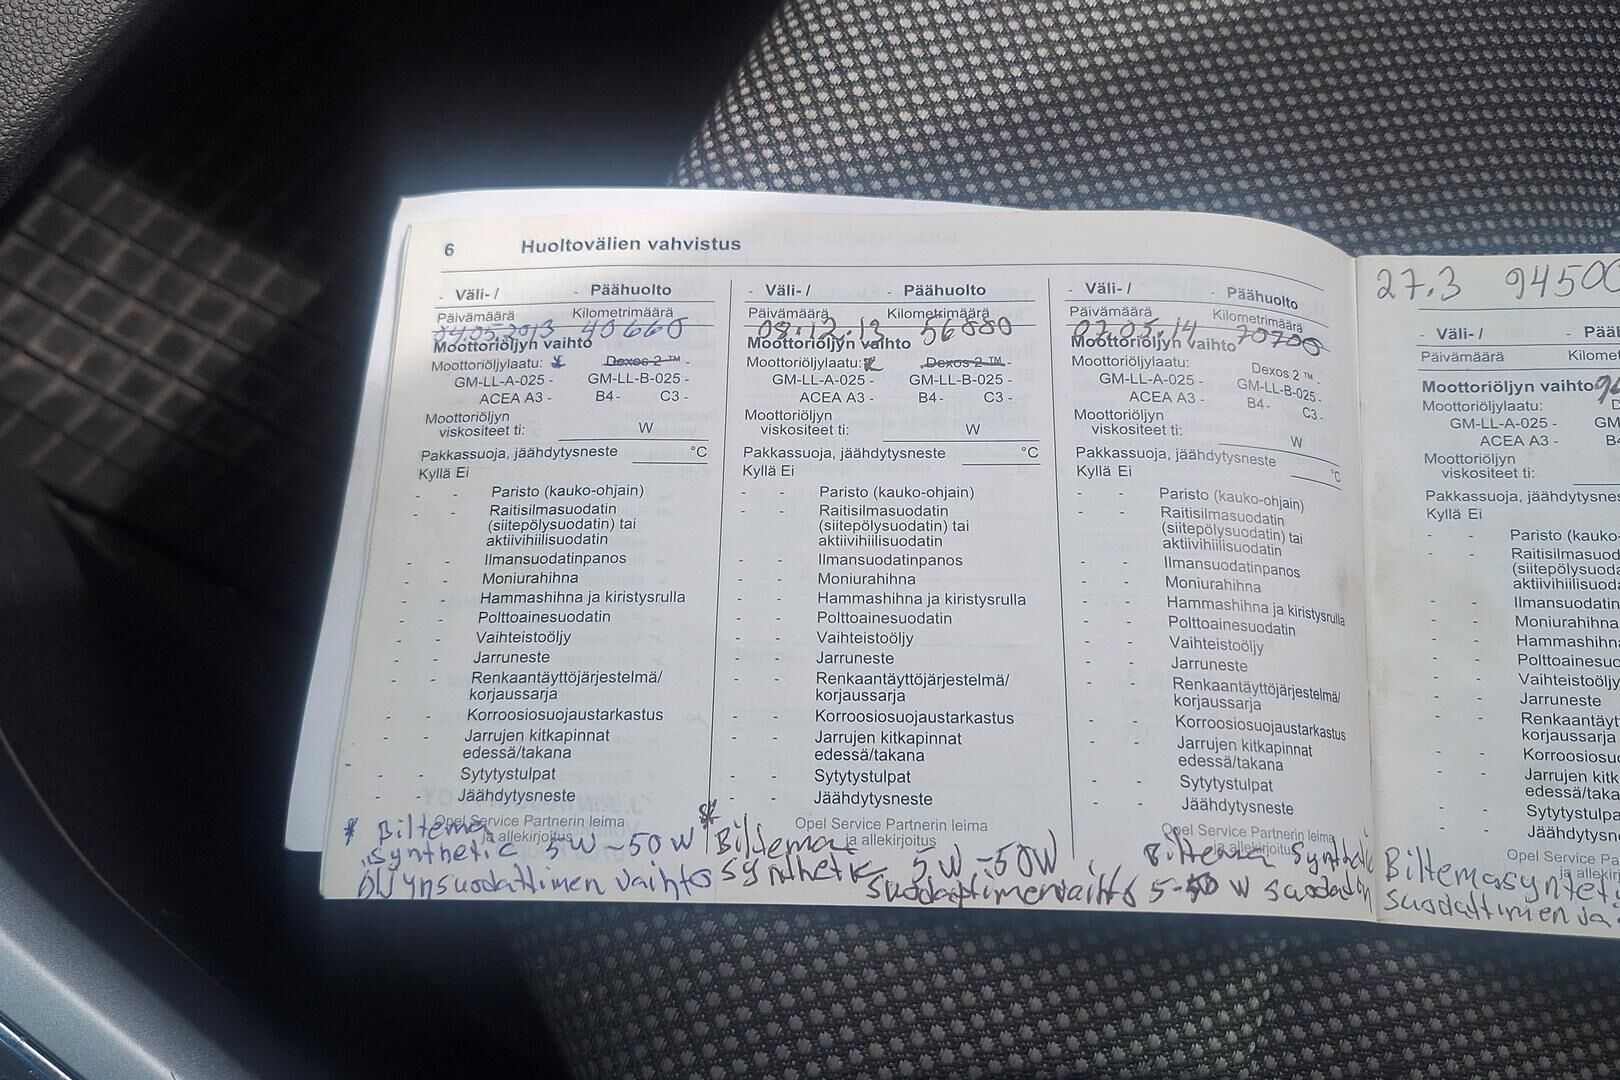 6 Huoltovälien vahvistus
- Väli- / - Päähuolto
Päivämäärä Kilometrimäärä
04.05.2013 40660
Moottoriöljyn vaihto
Moottoriöljylaatu: * Dexos 2 ™ -
GM-LL-A-025 - GM-LL-B-025 -
ACEA A3 - B4 - C3 -
Moottoriöljyn
viskositeet ti: W
Pakkassuoja, jäähdytysneste °C
Kyllä Ei
- - Paristo (kauko-ohjain)
- - Raitisilmasuodatin
(siitepölysuodatin) tai
aktiivihiilisuodatin
- - Ilmansuodatinpanos
- - Moniurahihna
- - Hammashihna ja kiristysrulla
- - Polttoainesuodatin
- - Vaihteistoöljy
- - Jarruneste
- - Renkaantäyttöjärjestelmä/
korjaussarja
- - Korroosiosuojaustarkastus
- - Jarrujen kitkapinnat
edessä/takana
- - Sytytystulpat
- - Jäähdytysneste
Opel Service Partnerin leima
ja allekirjoitus
* Biltema
synthetic 5W-50W
öljynsuodattimen vaihto
- Väli- / - Päähuolto
Päivämäärä Kilometrimäärä
08.12.13 56880
Moottoriöljyn vaihto
Moottoriöljylaatu: * Dexos 2 ™ -
GM-LL-A-025 - GM-LL-B-025 -
ACEA A3 - B4 - C3 -
Moottoriöljyn
viskositeet ti: W
Pakkassuoja, jäähdytysneste °C
Kyllä Ei
- - Paristo (kauko-ohjain)
- - Raitisilmasuodatin
(siitepölysuodatin) tai
aktiivihiilisuodatin
- - Ilmansuodatinpanos
- - Moniurahihna
- - Hammashihna ja kiristysrulla
- - Polttoainesuodatin
- - Vaihteistoöljy
- - Jarruneste
- - Renkaantäyttöjärjestelmä/
korjaussarja
- - Korroosiosuojaustarkastus
- - Jarrujen kitkapinnat
edessä/takana
- - Sytytystulpat
- - Jäähdytysneste
Opel Service Partnerin leima
ja allekirjoitus
* Biltema
synthetic 5W-50W
suodattimenvaihto
- Väli- / - Päähuolto
Päivämäärä Kilometrimäärä
02.05.14 70700
Moottoriöljyn vaihto
Moottoriöljylaatu: Dexos 2 ™ -
GM-LL-A-025 - GM-LL-B-025 -
ACEA A3 - B4 - C3 -
Moottoriöljyn
viskositeet ti: W
Pakkassuoja, jäähdytysneste °C
Kyllä Ei
- - Paristo (kauko-ohjain)
- - Raitisilmasuodatin
(siitepölysuodatin) tai
aktiivihiilisuodatin
- - Ilmansuodatinpanos
- - Moniurahihna
- - Hammashihna ja kiristysrulla
- - Polttoainesuodatin
- - Vaihteistoöljy
- - Jarruneste
- - Renkaantäyttöjärjestelmä/
korjaussarja
- - Korroosiosuojaustarkastus
- - Jarrujen kitkapinnat
edessä/takana
- - Sytytystulpat
- - Jäähdytysneste
Opel Service Partnerin leima
ja allekirjoitus
Biltema Synthetic
5-50 W suodatin
27.3 94500
- Väli- / - Pää
Päivämäärä Kilomet
Moottoriöljyn vaihto
Moottoriöljylaatu: D
GM-LL-A-025 - GM
ACEA A3 - B4
Moottoriöljyn
viskositeet ti:
Pakkassuoja, jäähdytysnes
Kyllä Ei
- - Paristo (kauko-
- - Raitisilmasuod
(siitepölysuoda
aktiivihiilisuoda
- - Ilmansuodatin
- - Moniurahihna
- - Hammashihna
- - Polttoainesuo
- - Vaihteistoöljy
- - Jarruneste
- - Renkaantäyt
korjaussarja
- - Korroosiosuo
- - Jarrujen kitka
edessä/takana
- - Sytytystulpa
- - Jäähdytysn
Opel Service Pa
ja allekir
Biltema syntet
suodattimen va